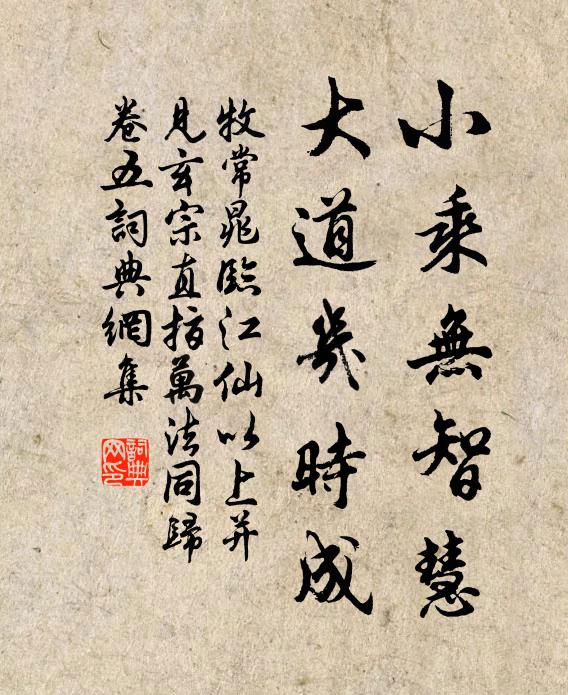 小乘無智慧
大道幾時成
牧常晁臨江仙以上并
見玄宗直指萬法同歸
卷五詞典網集
詞典网印